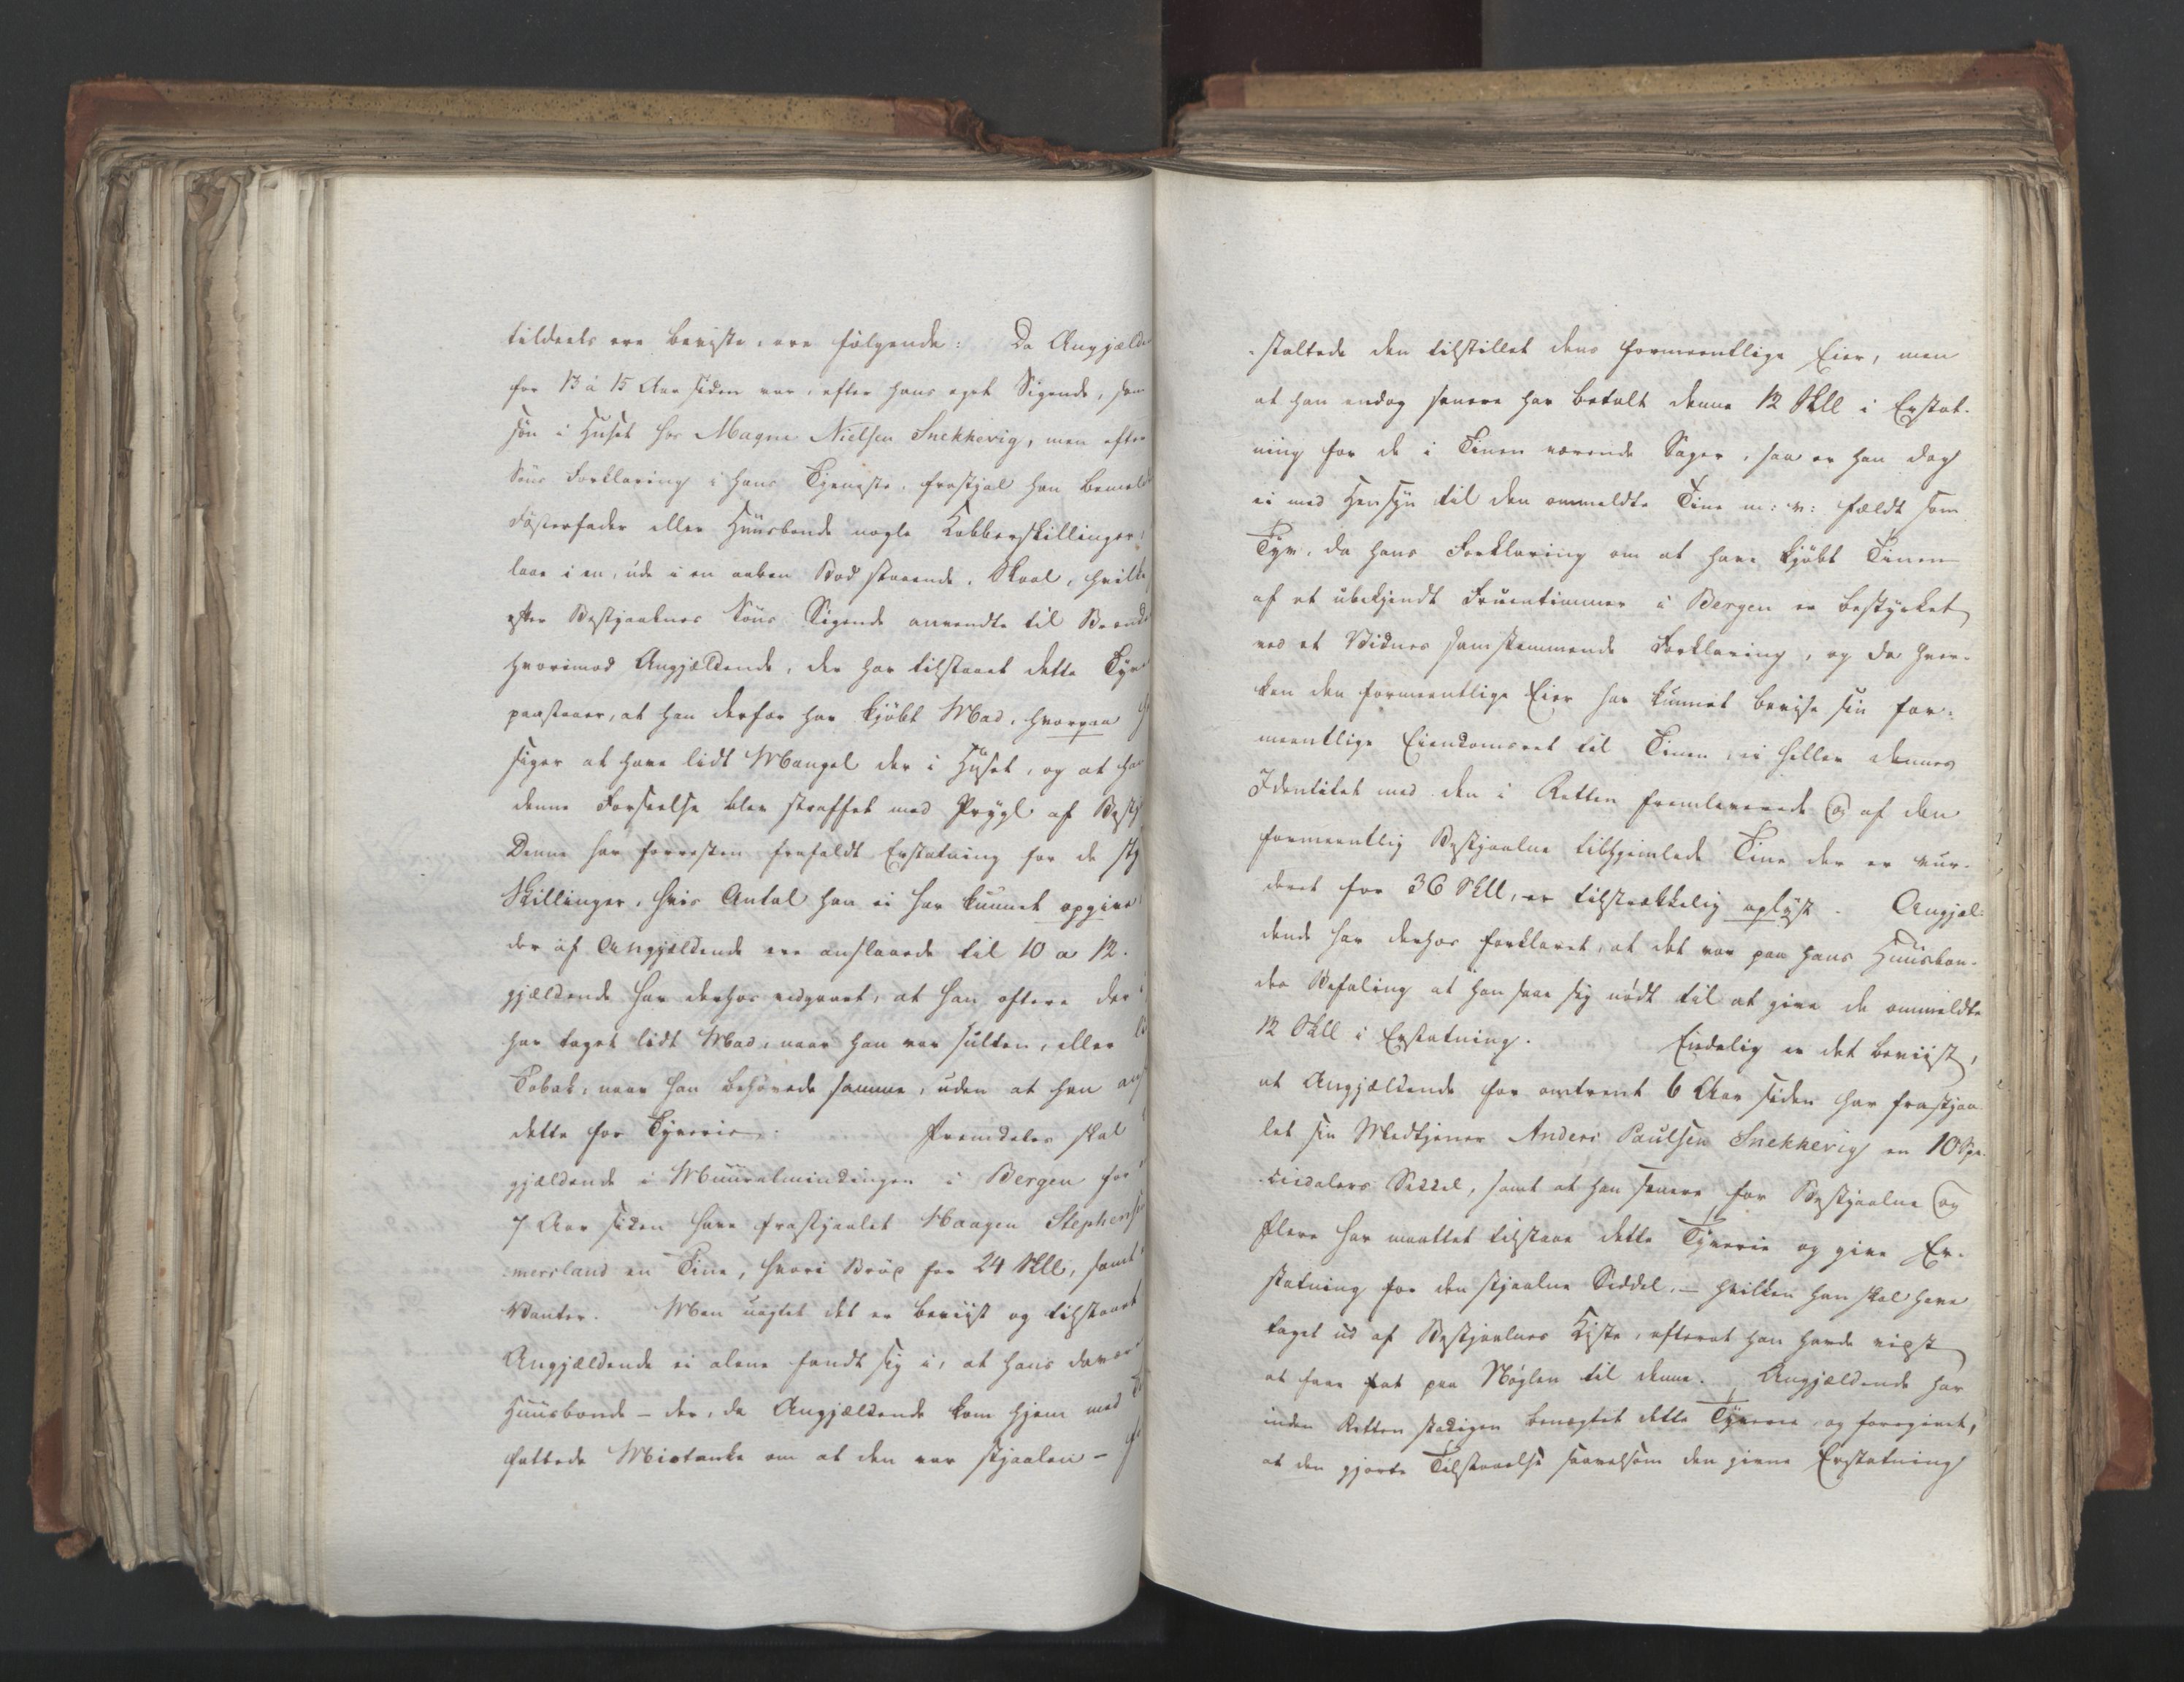 tildeels ere beviste, ere følgende: Da Angjælde
for 13 à 15 Aar siden var, efter hans eget Sigende, som
Søn i Huset hos Magne Nielsen Snekkevig, men efter
Søns Forklaring i hans Tjeneste, frastjal han bemeld
Fosterfader eller Huusbonde nogle Kobberskillinger,
laae i en, ude i en aaben Bod staaende, Skaal, hvilke
efter Bestjaalnes Søns Sigende anvendte til Brænde
hvorimod Angjældende, der har tilstaaet dette Tyve
paastaaer, at han derfor har kjøbt Mad, hvorpaa
siger at have lidt Mangel der i Huset, og at ha
denne Forseelse blev straffet med Prygl af Bestj
Denne har forresten frafaldt Erstatning for de stj
Skillinger, hvis Antal han ei har kunnet opgive
der af Angjældende ere anslaaede til 10 a 12.
gjældende har derhos vedgaaet, at han oftere der
har taget lidt Mad, naar han var sulten, eller li
Tobak, naar han behøvede samme, uden at han ans
dette for Tyverie. Fremdeles skal
gjældende i Muuralmindingen i Bergen for
7 Aar siden have frastjaalet Haagen Stephens
mersland en Tine, hvori Brød for 24 Skll, samt
Vanter. Men uagtet det er beviist og tilstaaet
Angjældende ei alene fandt sig i, at hans davær
Huusbonde – der, da Angjældende kom hjem med
fattede Mistanke om at den var stjaalen –
staltede den tilstillet dens formeentlige Eier, men
at han endog senere har betalt denne 12 Skll i Erstat-
ning for de i Tinen værende Sager, saa er han dog
ei med Hensyn til den ommeldte Tine m: v: fældt som
Tyv, da hans Forklaring om at have kjøbt Tinen
af et ubekjendt Fruentimmer i Bergen er bestyrket
ved et Vidnes samstemmende Forklaring, og da hver-
ken den formeentlige Eier har kunnet bevise sin for-
meentlige Eiendomsret til Tinen, ei heller dennes
Identitet med den i Retten fremleverede og af den
formeentlig Bestjaalne tilhjemlede Tine der er vur-
deret for 36 Skll, er tilstrækkelig oplyst. Angjæl-
dende har derhos forklaret, at det var paa hans Huusbon-
des Befaling at han saae sig nødt til at give de ommeldte
12 Skll i Erstatning. Endelig er det beviist,
at Angjældende for omtrent 6 Aar siden har frastjaa-
let sin Medtjener Anders Paulsen Snekkevig en 10 Spe-
ciedalers Seddel, samt at han senere for Bestjaalne og
flere har maattet tilstaae dette Tyverie og give Er-
statning for den stjaalne Seddel, – hvilken han skal have
taget ud af Bestjaalnes Kiste, efterat han havde vidst
at faae fat paa Nøglen til denne. Angjældende har
inden Retten stadigen benægtet dette Tyverie, og foregivet,
at den gjorte Tilstaaelse saavelsom den givne Erstatning